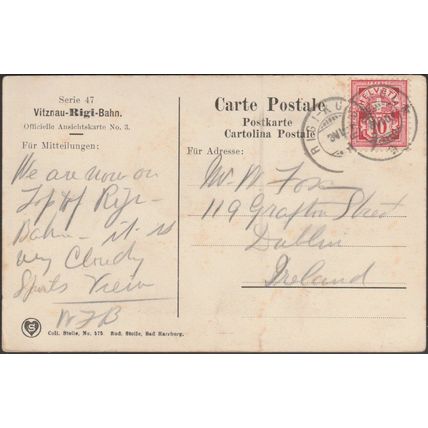 Serie 47
Vitznau-Rigi-Bahn.
Officielle Ansichtskarte No. 3.
Für Mitteilungen:
We are now on
Top of Rigi-
Bahn - it is
very Cloudy
Spoils View
WFB
Coll. Stolle, No. 575 Rud. Stolle, Bad Harzburg.
Carte Postale
Postkarte
Cartolina Postale
Für Adresse:
Mr. W Fox
119 Grafton Street
Dublin
Ireland
HELVETIA
10
RIGI-KU